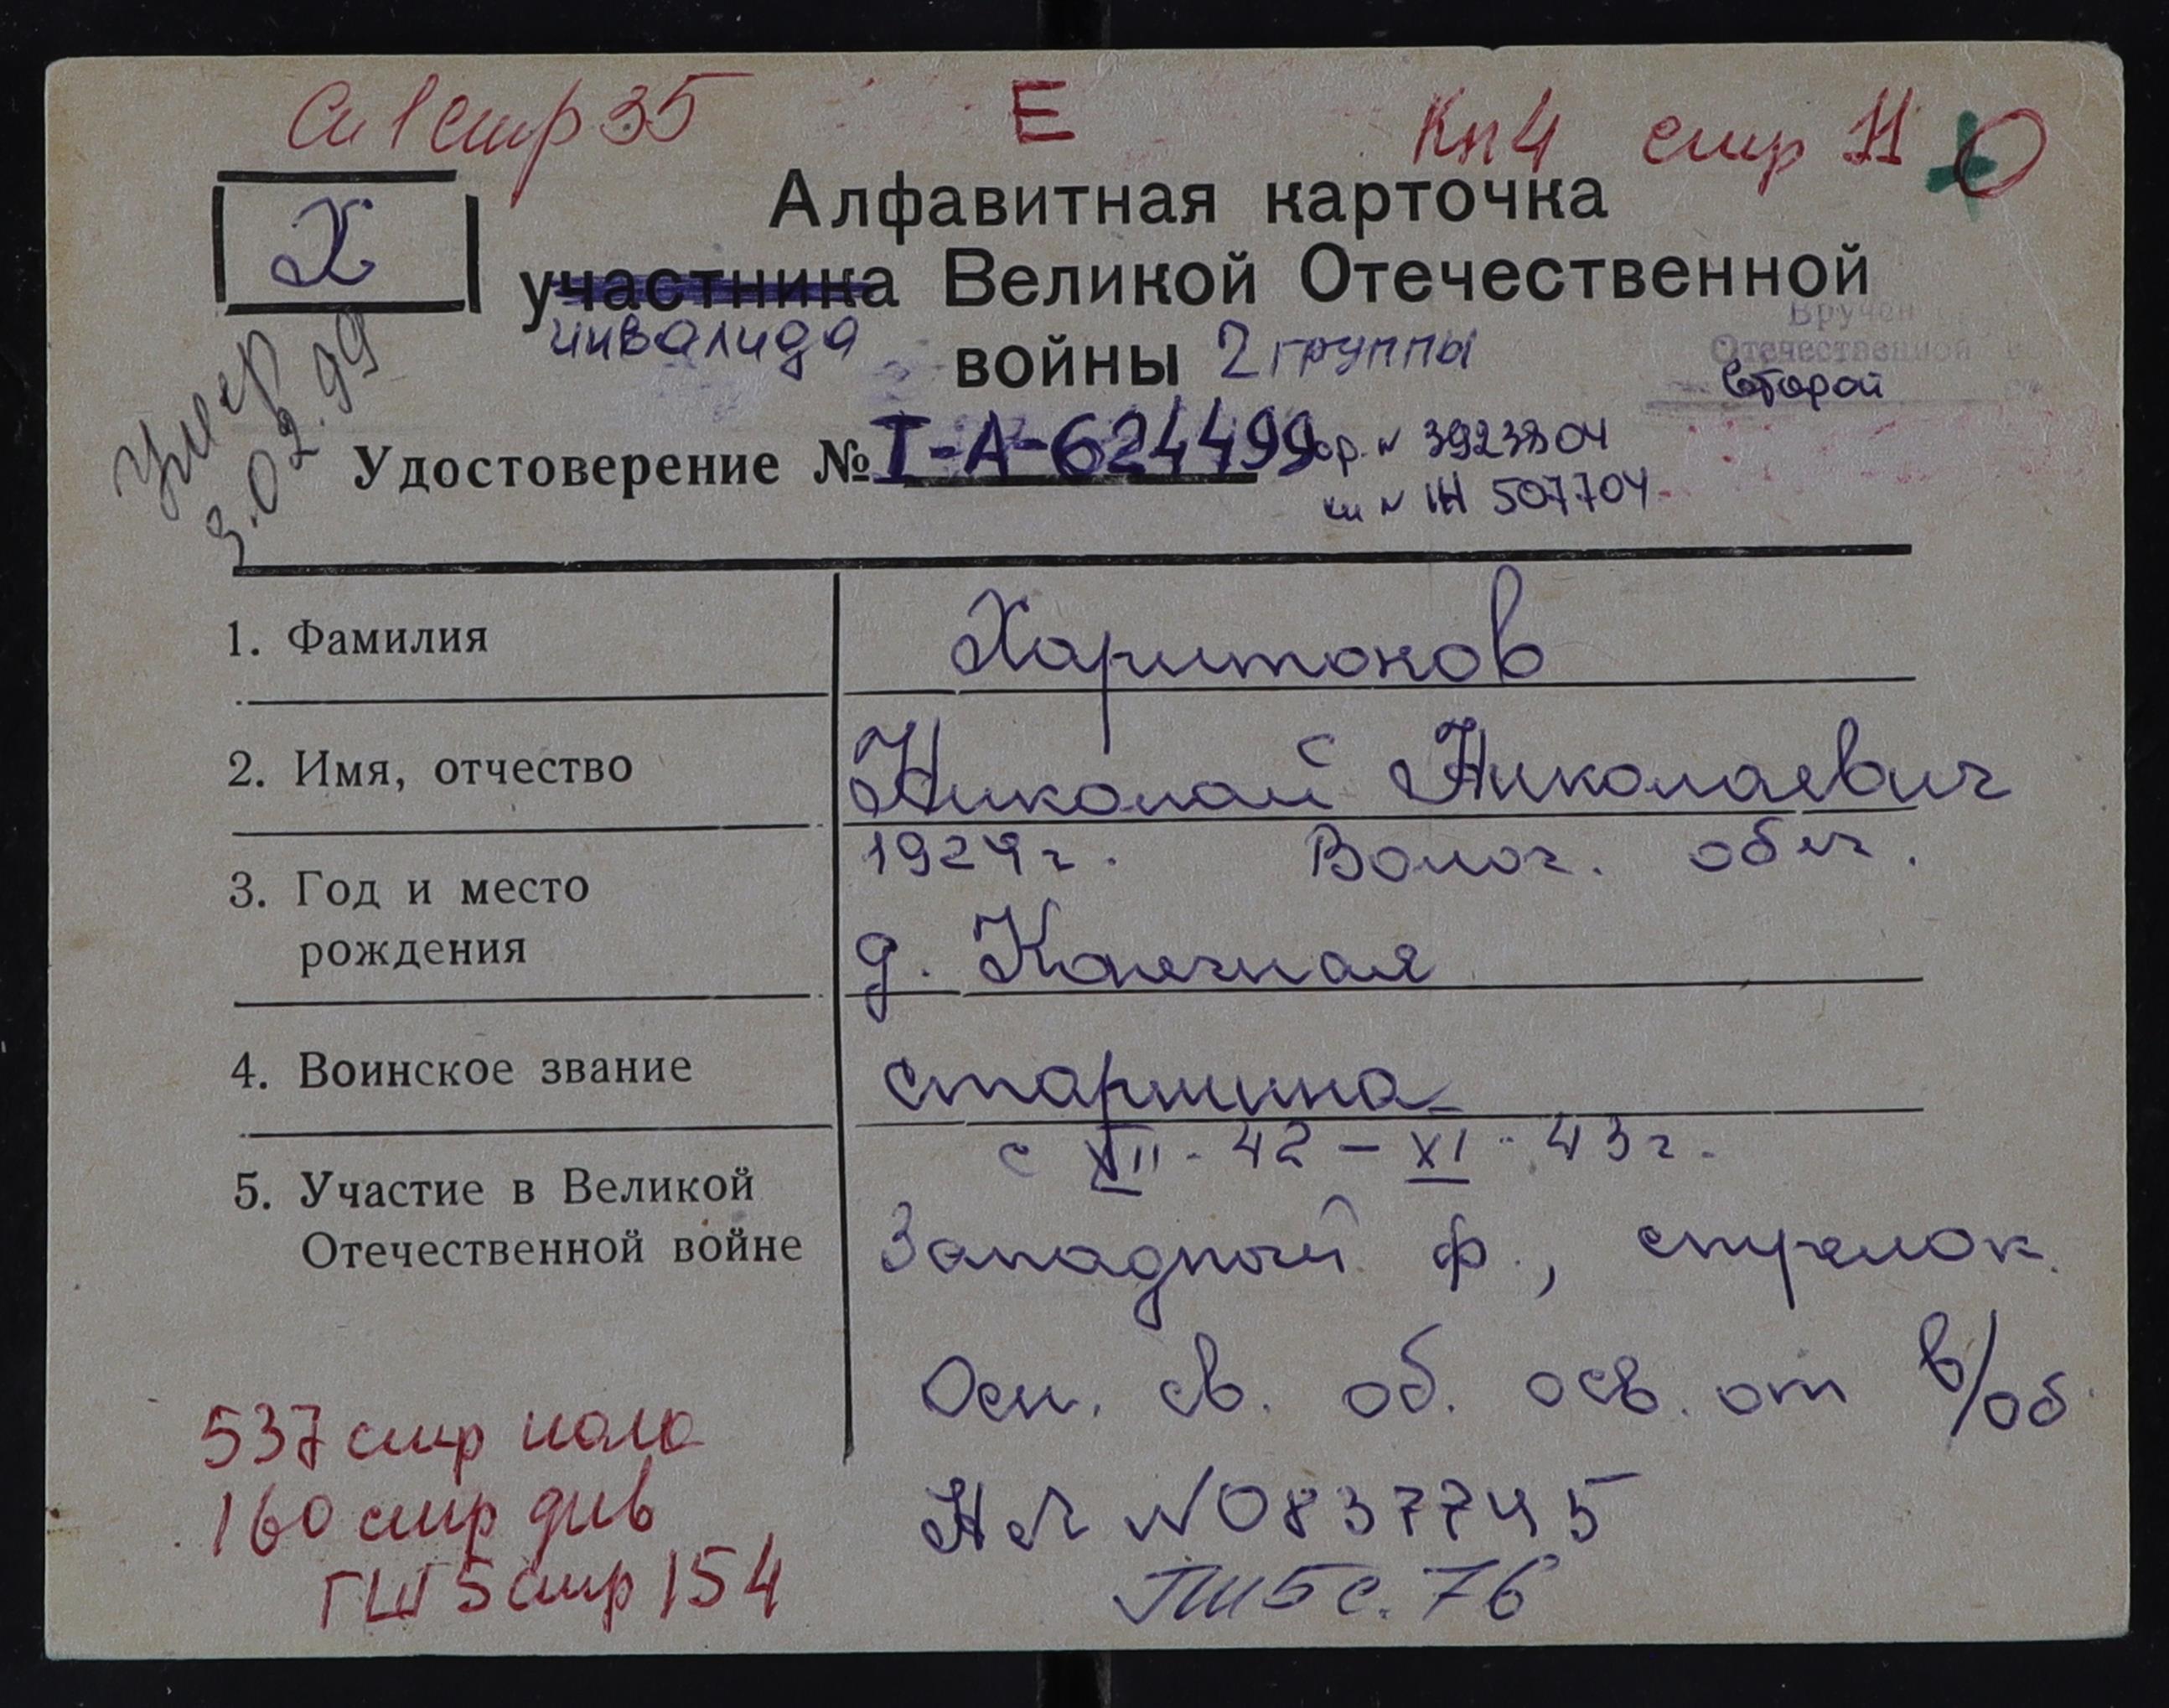 Сп 1 стр 35 Е Кн 4 стр 11 О
Алфавитная карточка
Х
участника Великой Отечественной
инвалида войны 2 группы
Вручен
Отечественной в
второй
Умер
3.02.99
Удостоверение № I-А-624499 ор. № 3923804
кн № 1Н 507704
1. Фамилия Харитонов
2. Имя, отчество Николай Николаевич
3. Год и место рождения 1924 г. Волог. обл.
д. Конечная
4. Воинское звание старшина
5. Участие в Великой Отечественной войне с XII - 42 - XI - 43 г.
Западный ф., стрелок
Осн. св. об. осв. от в/об
537 стр полк
160 стр див
НЛ № 0837745
ГШ 5 стр 154
ГШ 5 с. 76